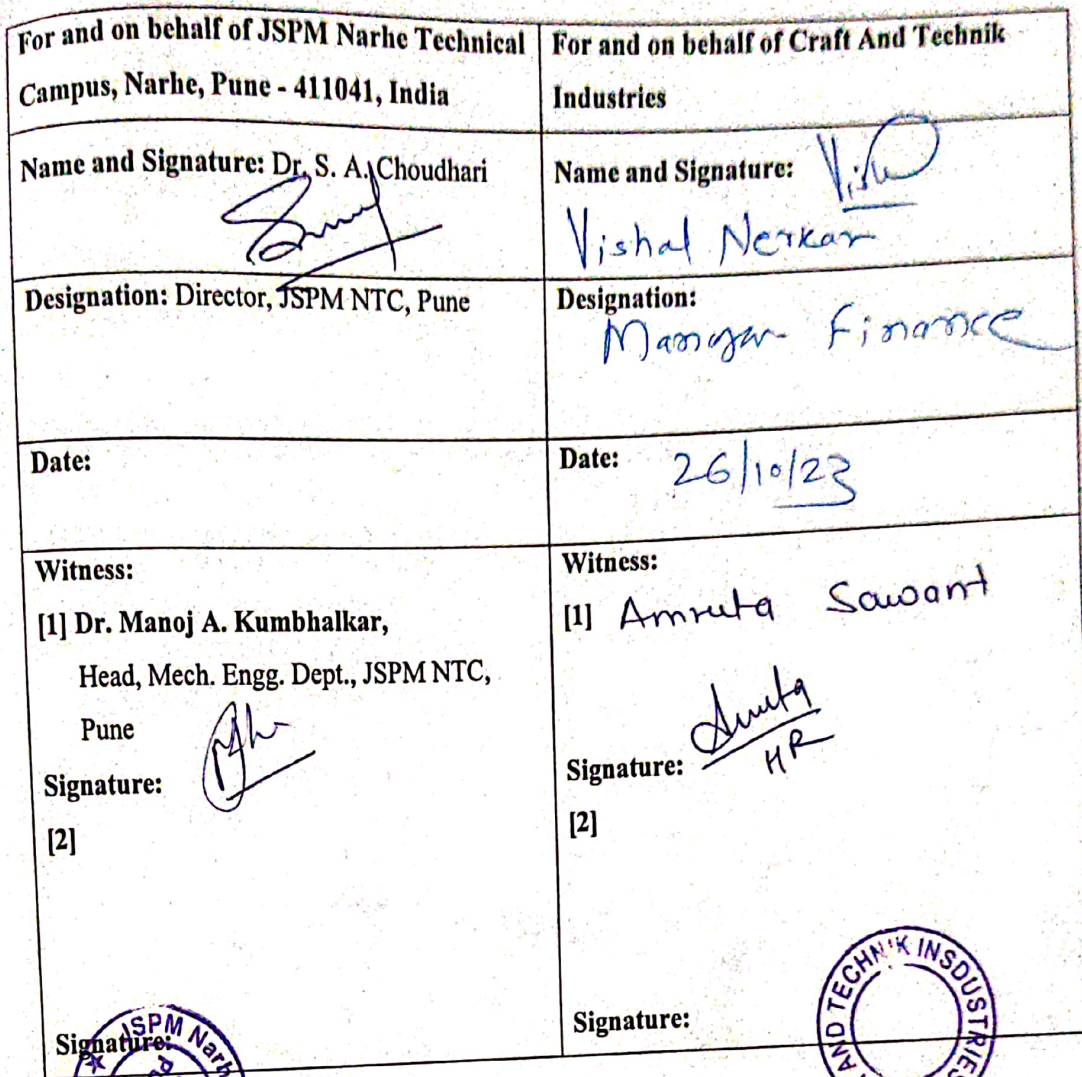 For and on behalf of JSPM Narhe Technical
Campus, Narhe, Pune - 411041, India
For and on behalf of Craft And Technik
Industries
Name and Signature: Dr. S. A. Choudhari
Name and Signature:
Vishal Nerkar
Designation: Director, JSPM NTC, Pune
Designation:
Manager Finance
Date:
Date: 26/10/23
Witness:
[1] Dr. Manoj A. Kumbhalkar,
Head, Mech. Engg. Dept., JSPM NTC,
Pune
Signature:
[2]
Signature:
Witness:
[1] Amruta Sawant
Signature: Amruta
HR
[2]
Signature:
JSPM Narh
AND TECHNIK INSDUSTRIES